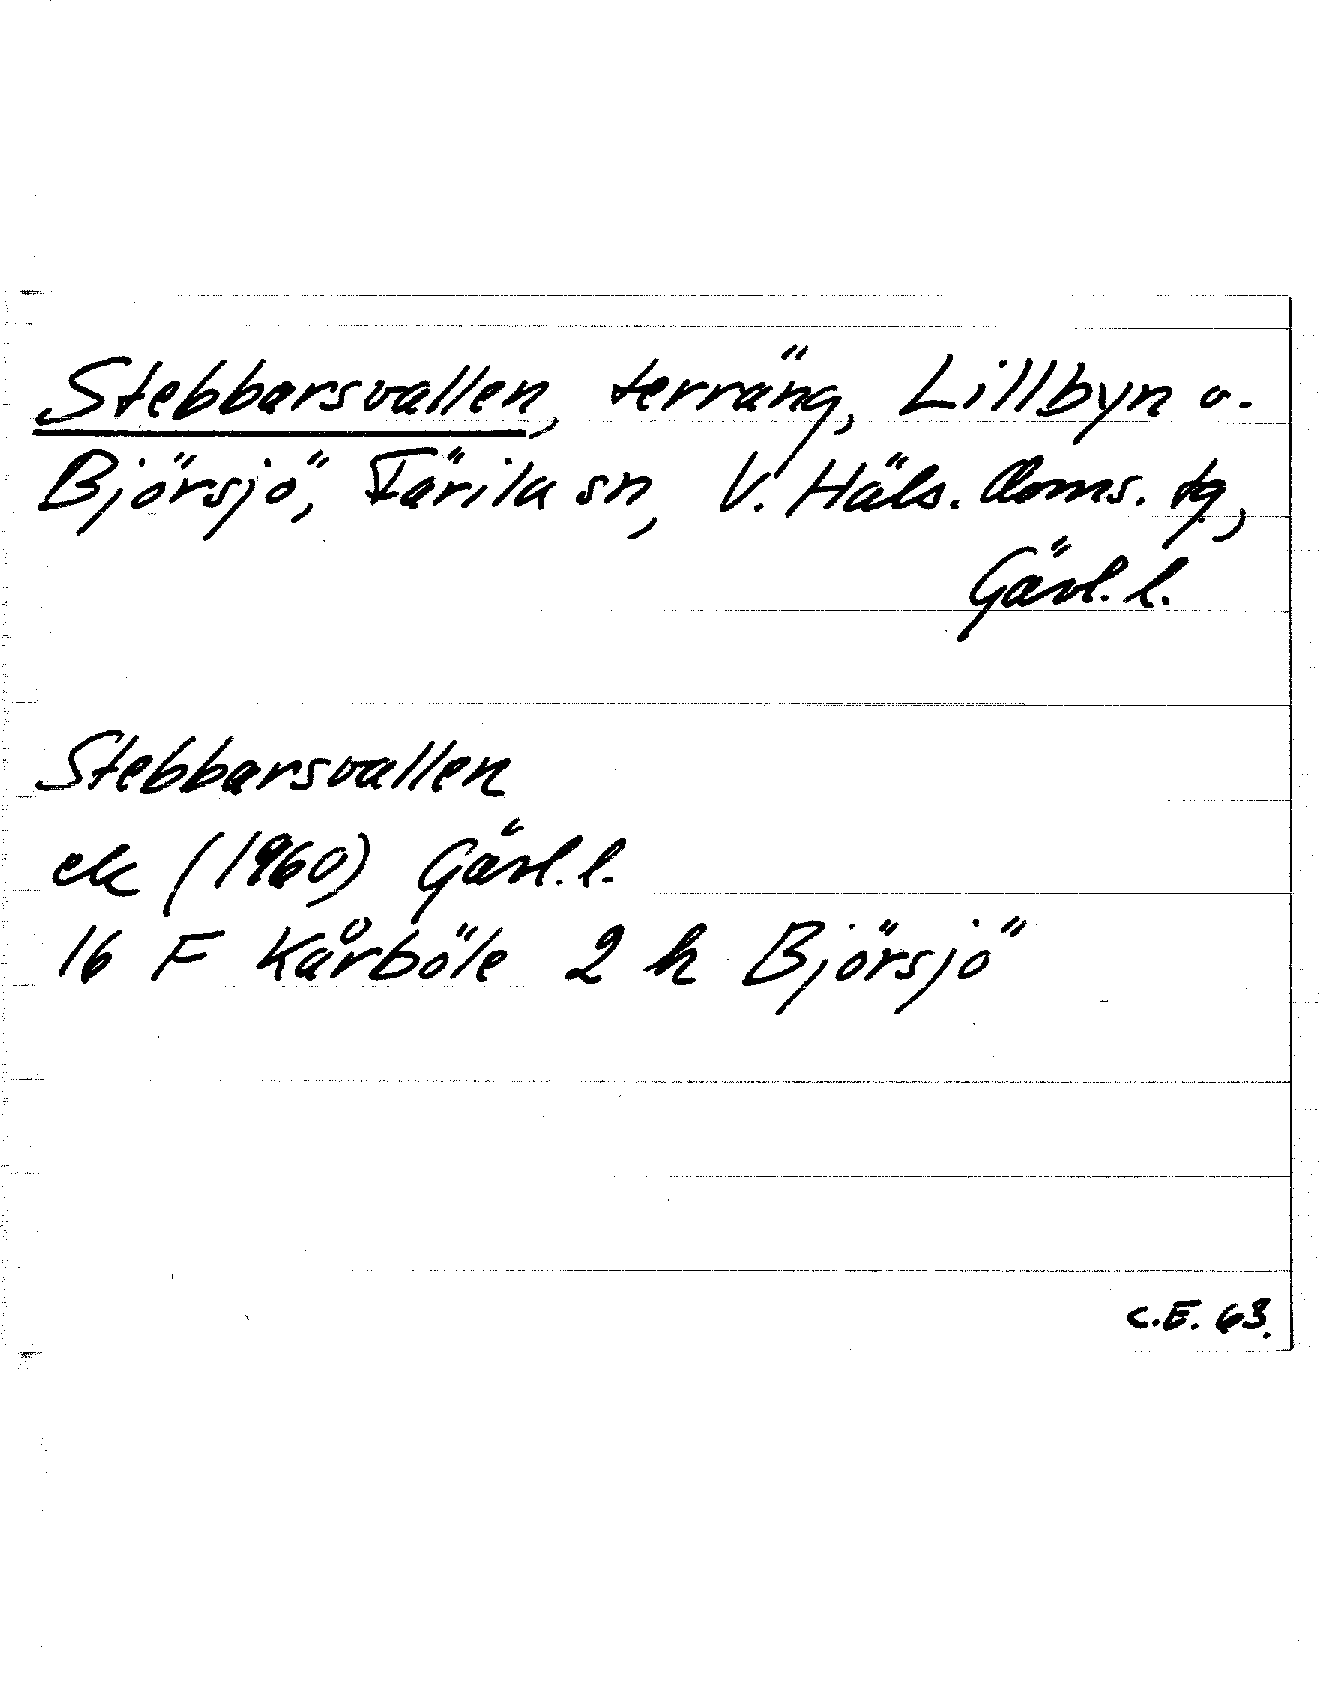 Stebbarsvallen, terräng, Lillbyn o.
Björsjö, Färila sn, V. Häls. doms. tg,
Gävl. l.
Stebbarsvallen
ek (1960) Gävl. l.
16 F Kårböle 2 h Björsjö
C.E. 63.